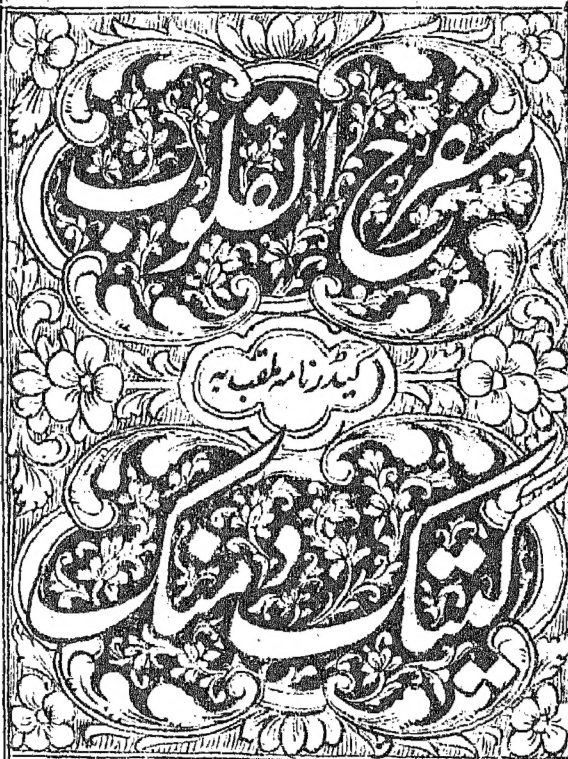 مفرح القلوب
گیڈر نامه ملقب به
کیتک دمنک